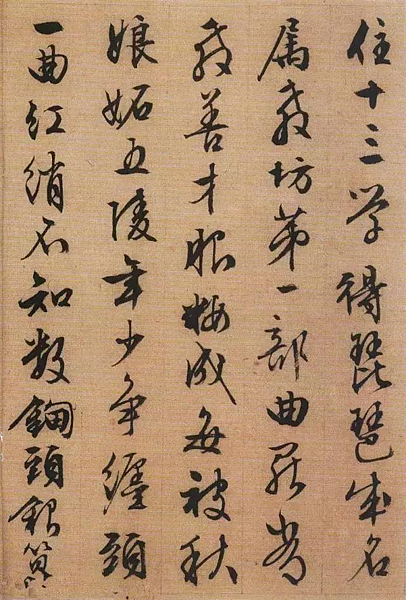 住十三学得琵琶成名
属教坊第一部曲罷常
教善才服粧成每被秋
娘妬五陵年少争纏頭
一曲红绡不知数鈿頭銀篦